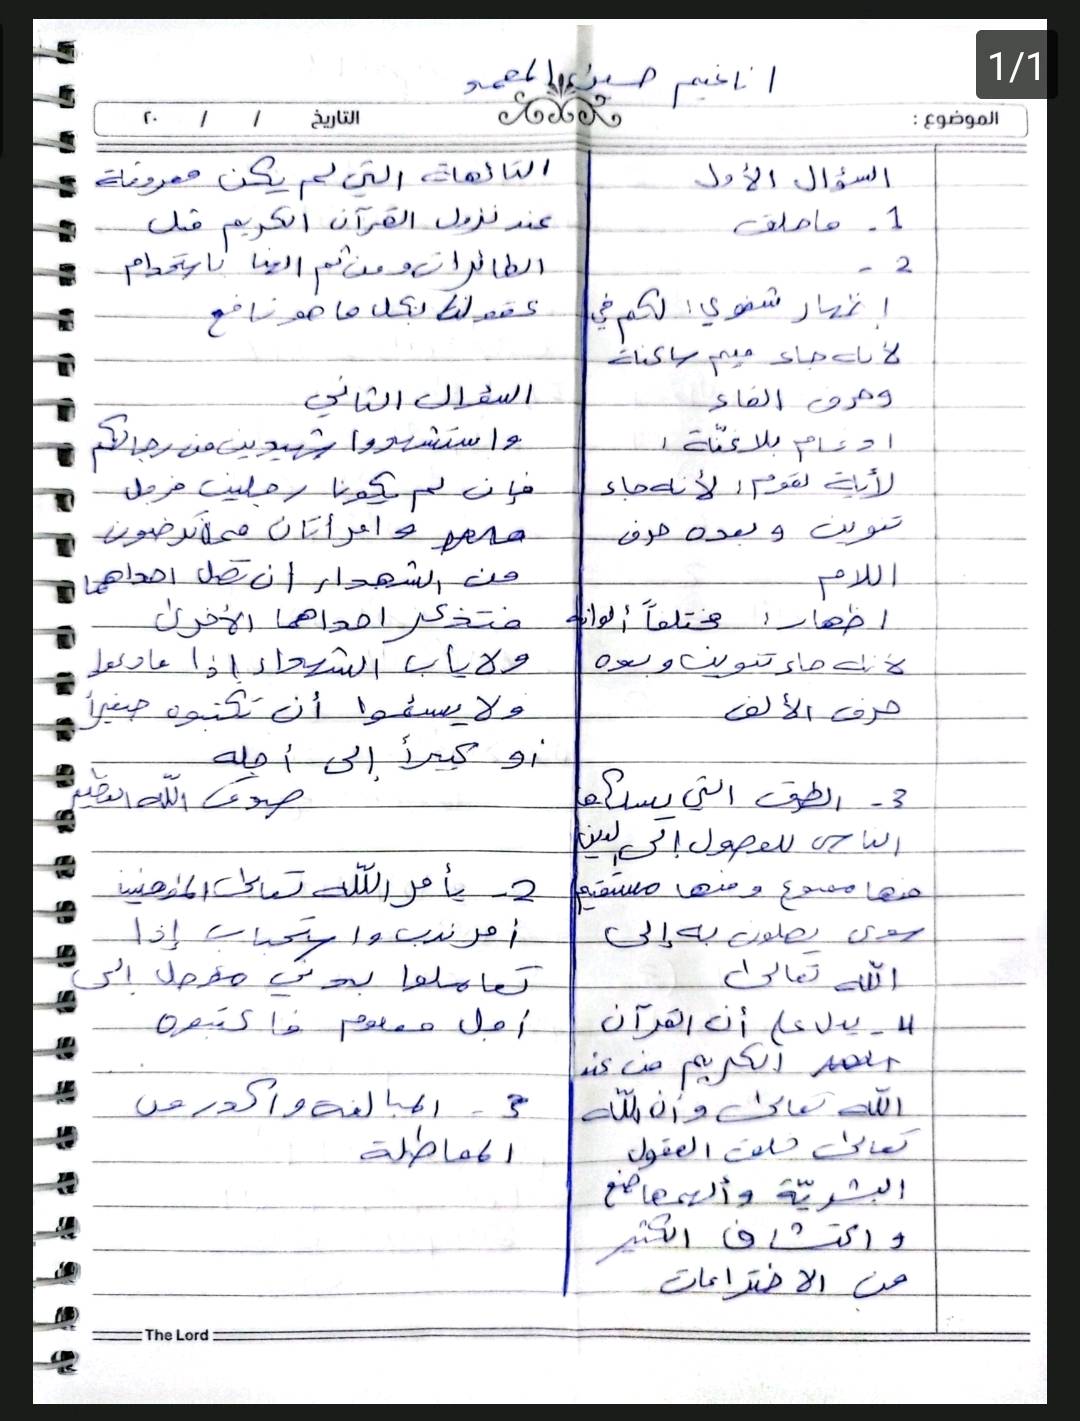 1/1
اناغيم حسين المحمد
الموضوع :
التاريخ / / ٢٠
السؤال الأول
1. ماخلق
2 -
إظهار شفوي: لكم في
لأنه جاء ميم ساكنة
وحرف الفاء
ادغام بلا غنّة:
لأية لقوم: لأنه جاء
تنوين و بعده حرف
اللام
اظهار: مختلفاً ألوانه
لأنه جاء تنوين و بعده
حرف الألف
3 - الطرق التي يسلكها
الناس للوصول إلى
منها معوج و منها مستقيم
سوى يصلون به إلى
الله تعالى
4 - يدل على أن القرآن
الكريم من عند
الله تعالى وأن الله
تعالى خلق العقول
البشريّة وألهمها صنع
و اكتشاف الكثير
من الاختراعات
التالهات التي لم يكن معروفاة
عند نزول القرآن الكريم قبل
الطائرات و من ثم الهنا باستخدام
عقولنا بكل ما هو نافع
السؤال الثاني
واستشهدوا شهيدين من رجالكم
فإن لم يكونا رجلين فرجل
و امرأتان مما ترضون
من الشهداء أن تضل احداهما
فتذكر احداهما الأخرى
ولا ياب الشهداء إذا مادعوا
ولا يسئموا أن تكتبوه صغيراً
أو كبيراً إلى أجله
صدق الله العظيم
2 - يأمر الله تعالى المؤمنين
أمر ندب واستحباب إذا
تعاملوا بدين مؤجل إلى
أجل معلوم فاكتبوه
3 - المبالغة و
المماطلة
The Lord